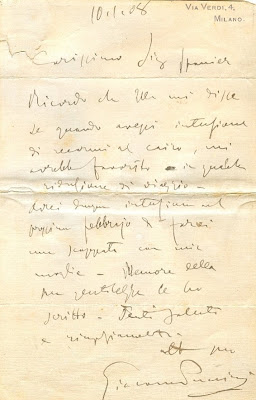 VIA VERDI, 4,
MILANO.
10.1.08
Carissimo Sig
Ricordo che Ella mi disse
se quando avessi intenzione
di recarmi al Cairo, mi
avrebbe favorito in qualche
riduzione di viaggio -
avrei dunque intenzione nel
prossimo febbrajo di farci
una scappata con mia
moglie - Memore della
sua gentilezza le ho
scritto - Tanti saluti
e ringraziamenti
suo
Giacomo Puccini